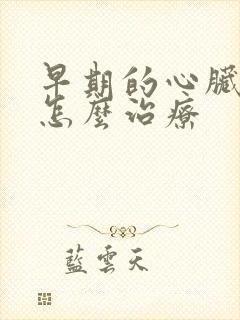 早期的心臟
怎麼治療
藍雲天